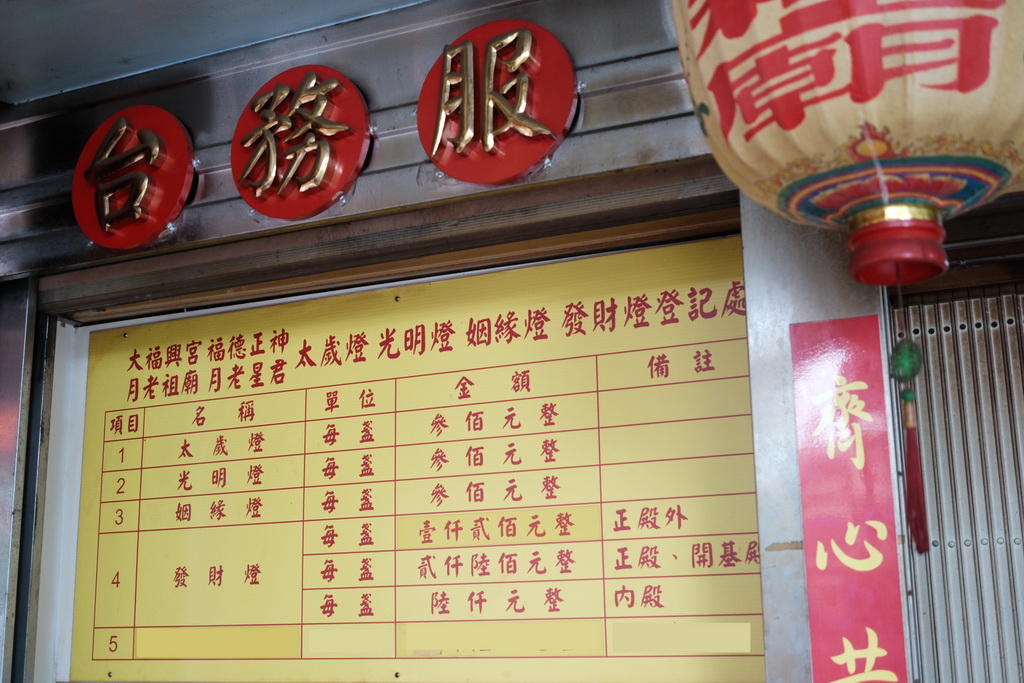 服務台
大福興宮 福德正神
月老祖廟 月老星君
太歲燈 光明燈 姻緣燈 發財燈登記處
項目 名稱 單位 金額 備註
1 太歲燈 每盞 參佰元整
2 光明燈 每盞 參佰元整
3 姻緣燈 每盞 參佰元整
4 發財燈 每盞 壹仟貳佰元整 正殿外
每盞 貳仟陸佰元整 正殿、開基殿
每盞 陸仟元整 內殿
5
齊心